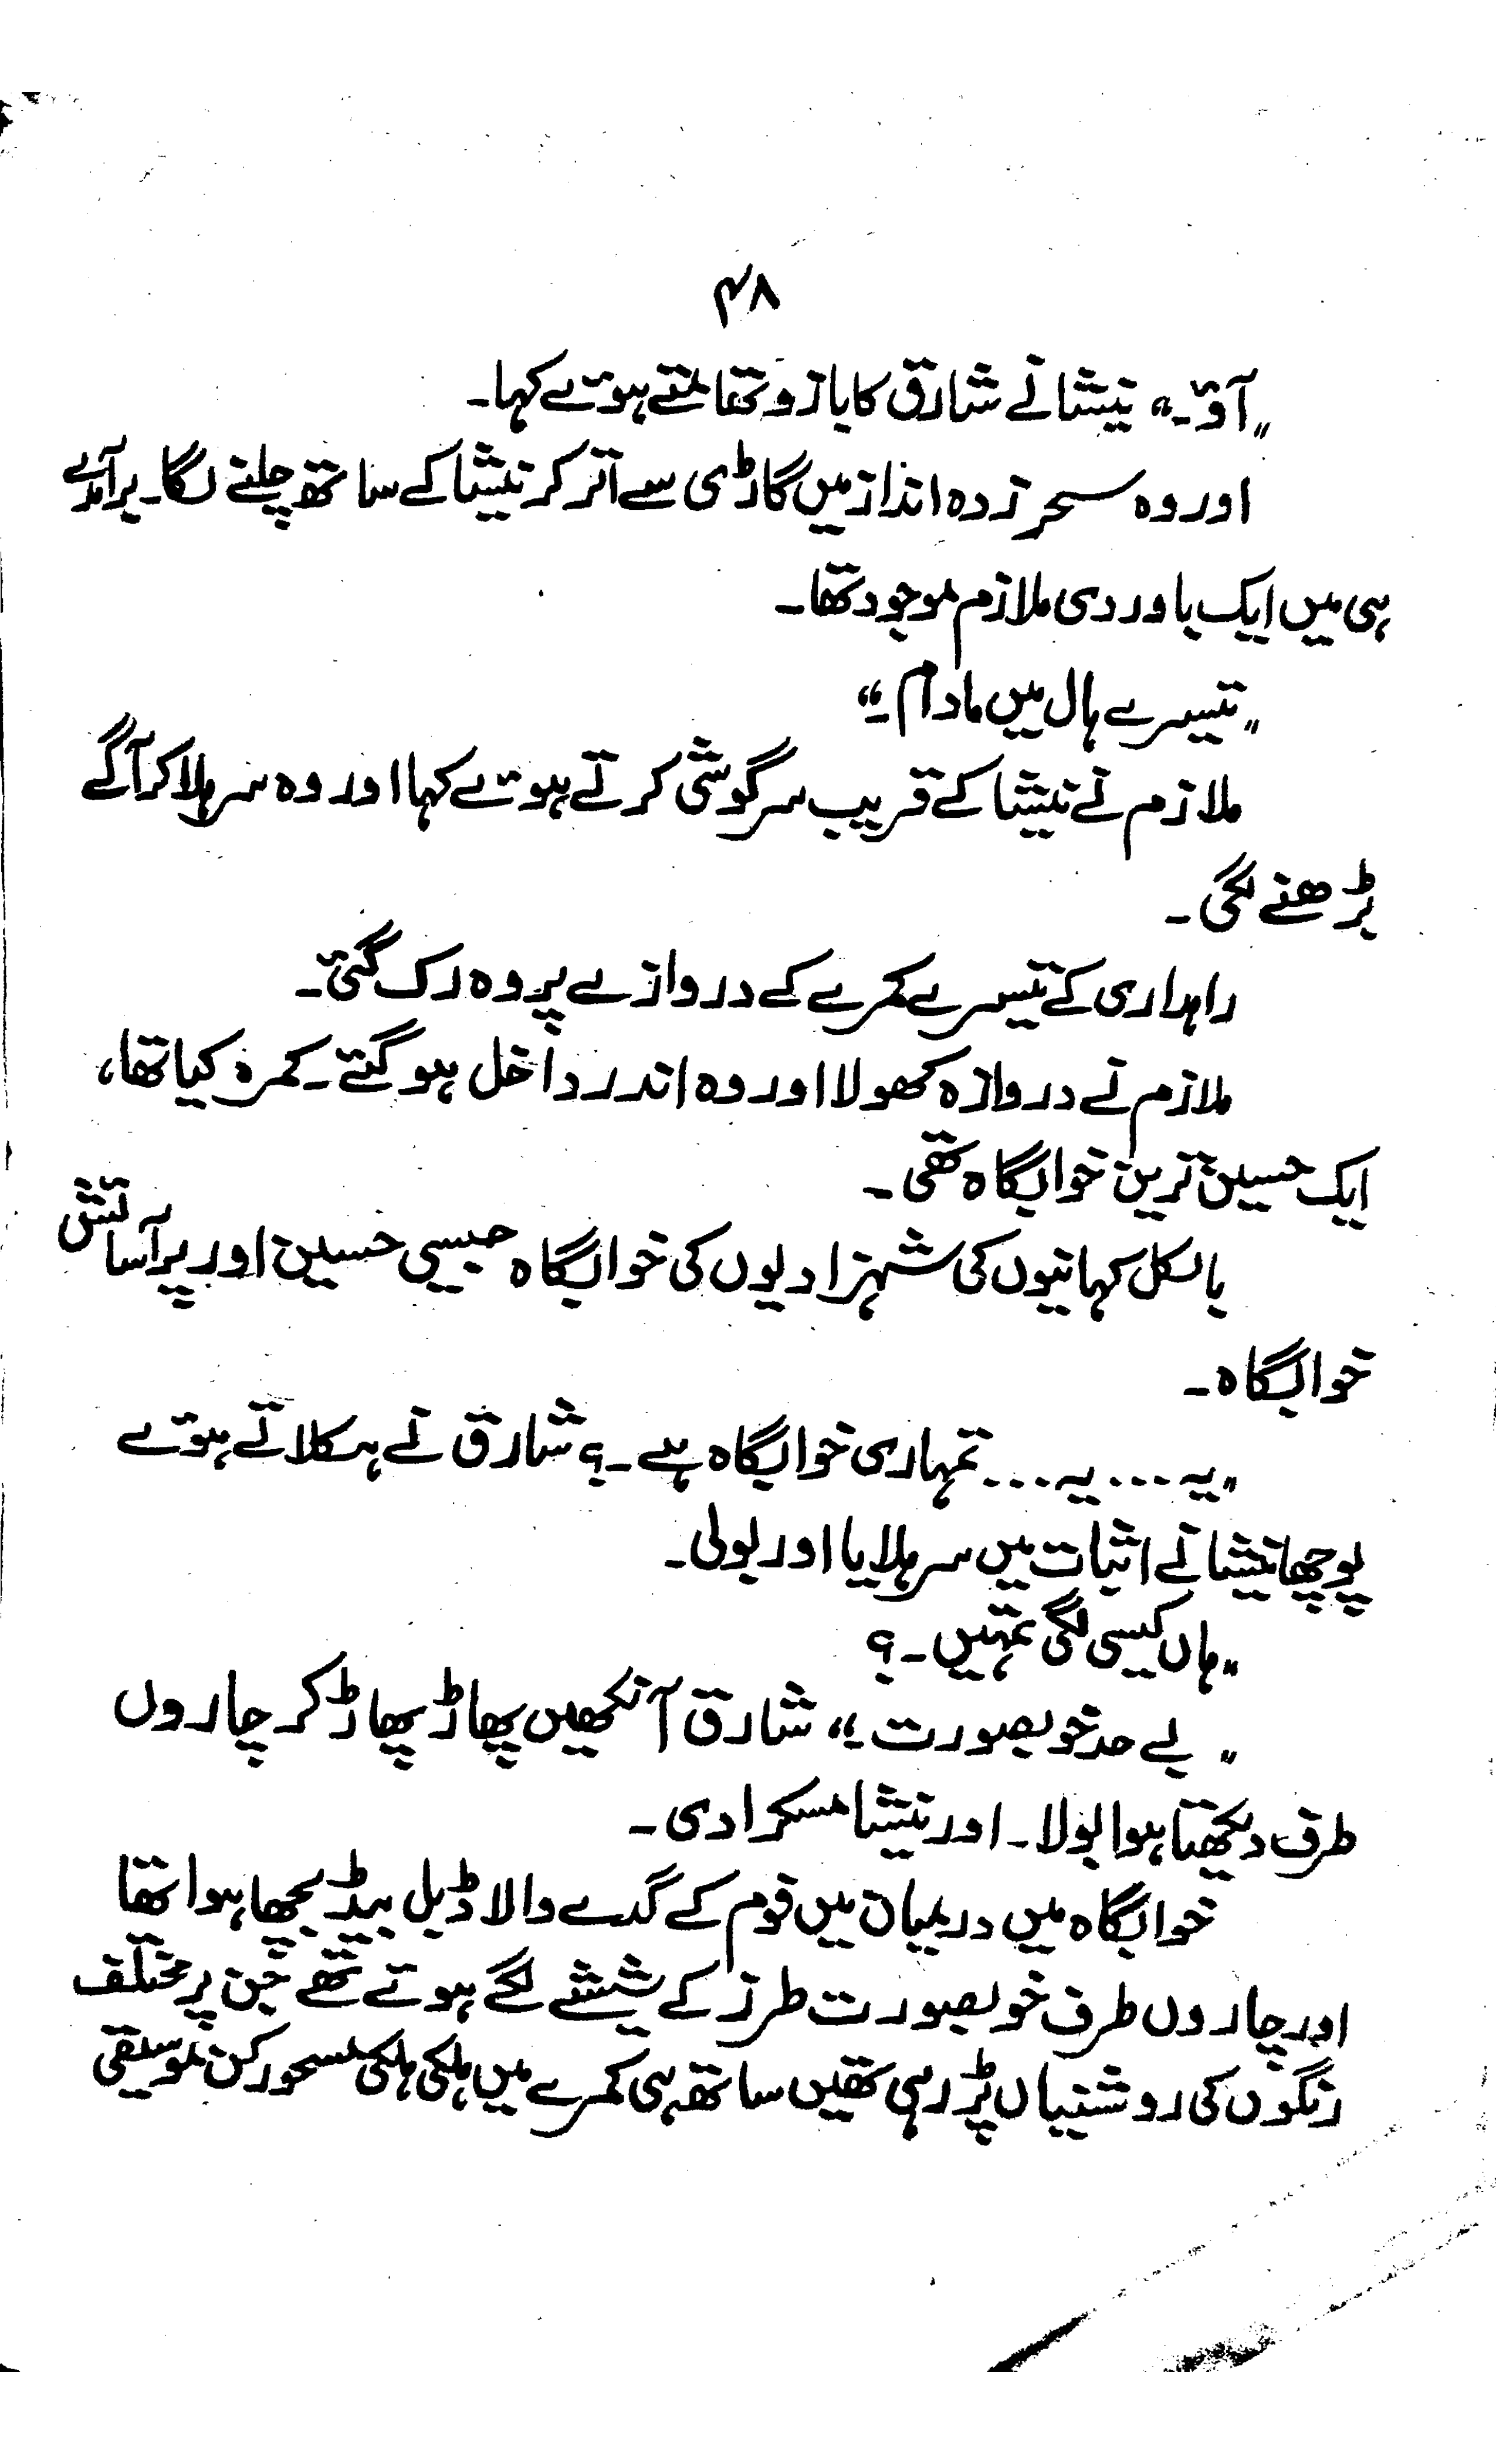 ۴۸
"آؤ۔" نیشا نے شارق کا بازو تھامتے ہوئے کہا۔
اور وہ سحر زدہ انداز میں گاڑی سے اتر کر نیشا کے ساتھ چلنے لگا۔ برآمدے
ہی میں ایک باوردی ملازم موجود تھا۔
"تیسرے ہال میں مادام۔"
ملازم نے نیشا کے قریب سرگوشی کرتے ہوئے کہا اور وہ سر ہلا کر آگے
بڑھنے لگی۔
راہداری کے تیسرے کمرے کے دروازے پر وہ رک گئی۔
ملازم نے دروازہ کھولا اور وہ اندر داخل ہو گئے۔ کمرہ کیا تھا،
ایک حسین ترین خوابگاہ تھی۔
بالکل کہانیوں کی شہزادیوں کی خوابگاہ جیسی حسین اور پرآسائش
خوابگاہ۔
"یہ ... یہ ... تمہاری خوابگاہ ہے۔؟ شارق نے ہکلاتے ہوئے
پوچھا نیشا نے اثبات میں سر ہلایا اور بولی۔
"ہاں کیسی لگی تمہیں۔؟
"بے حد خوبصورت۔" شارق آنکھیں پھاڑ پھاڑ کر چاروں
طرف دیکھتا ہوا بولا۔ اور نیشا مسکرا دی۔
خوابگاہ میں درمیان میں فوم کے گدے والا ڈبل بیڈ بچھا ہوا تھا
اور چاروں طرف خوبصورت طرز کے شیشے لگے ہوئے تھے جن پر مختلف
رنگوں کی روشنیاں پڑ رہی تھیں ساتھ ہی کمرے میں ہلکی ہلکی مسحور کن موسیقی